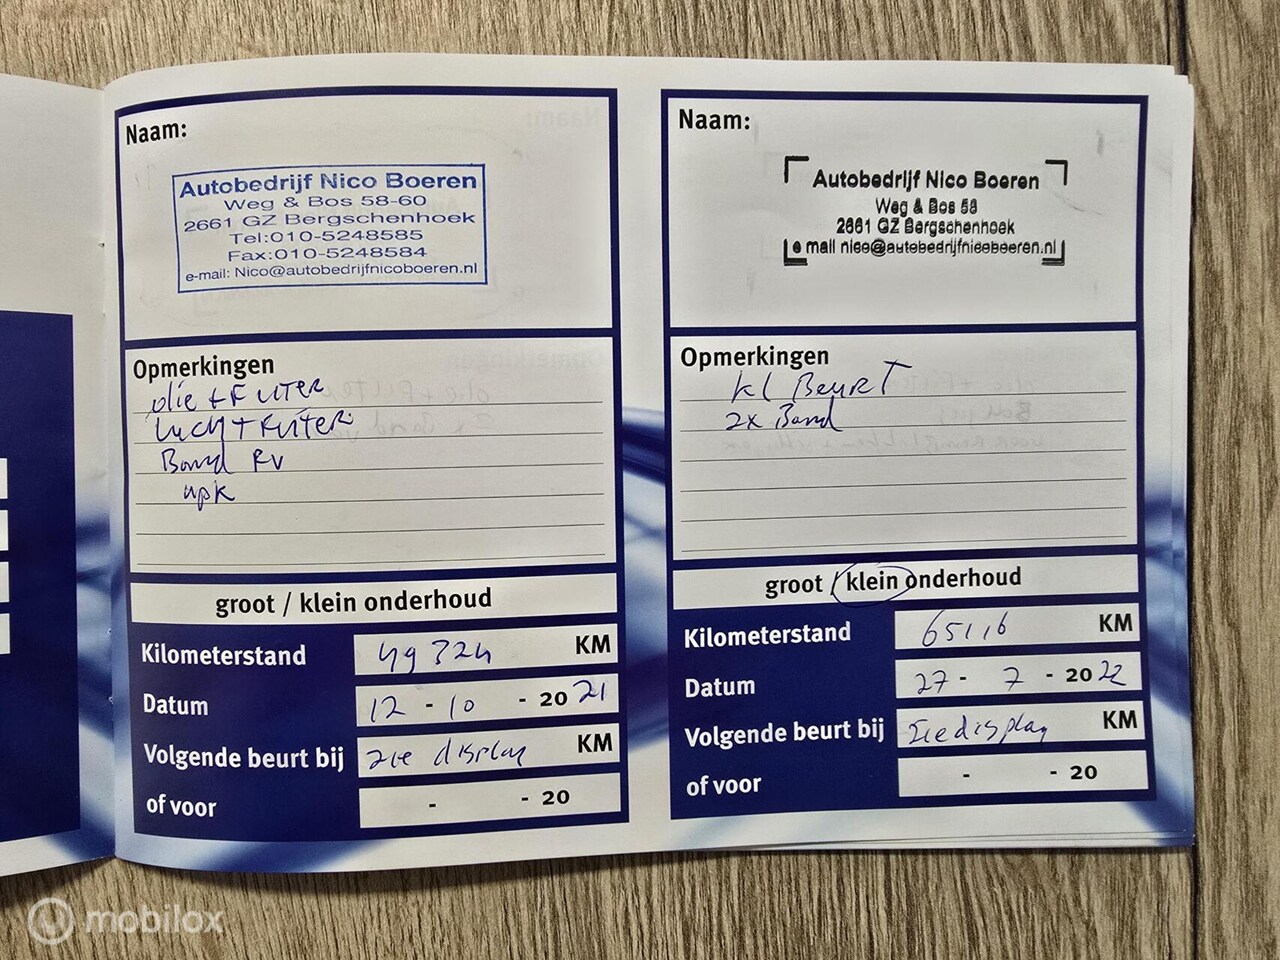 Naam:
Autobedrijf Nico Boeren
Weg & Bos 58-60
2661 GZ Bergschenhoek
Tel:010-5248585
Fax:010-5248584
e-mail: Nico@autobedrijfnicoboeren.nl
Opmerkingen
olie + FiLTER
Lucht + FiLTER
Band RV
APK
groot / klein onderhoud
Kilometerstand 49324 KM
Datum 12 - 10 - 20 21
Volgende beurt bij zie display KM
of voor - - 20
Naam:
Autobedrijf Nico Boeren
Weg & Bos 58
2661 GZ Bergschenhoek
e mail nico@autobedrijfnicoboeren.nl
Opmerkingen
kl BeuRT
2x Band
groot / klein onderhoud
Kilometerstand KM
Datum 27 - 7 - 20 22
Volgende beurt bij Zie display KM
of voor - - 20
mobilox